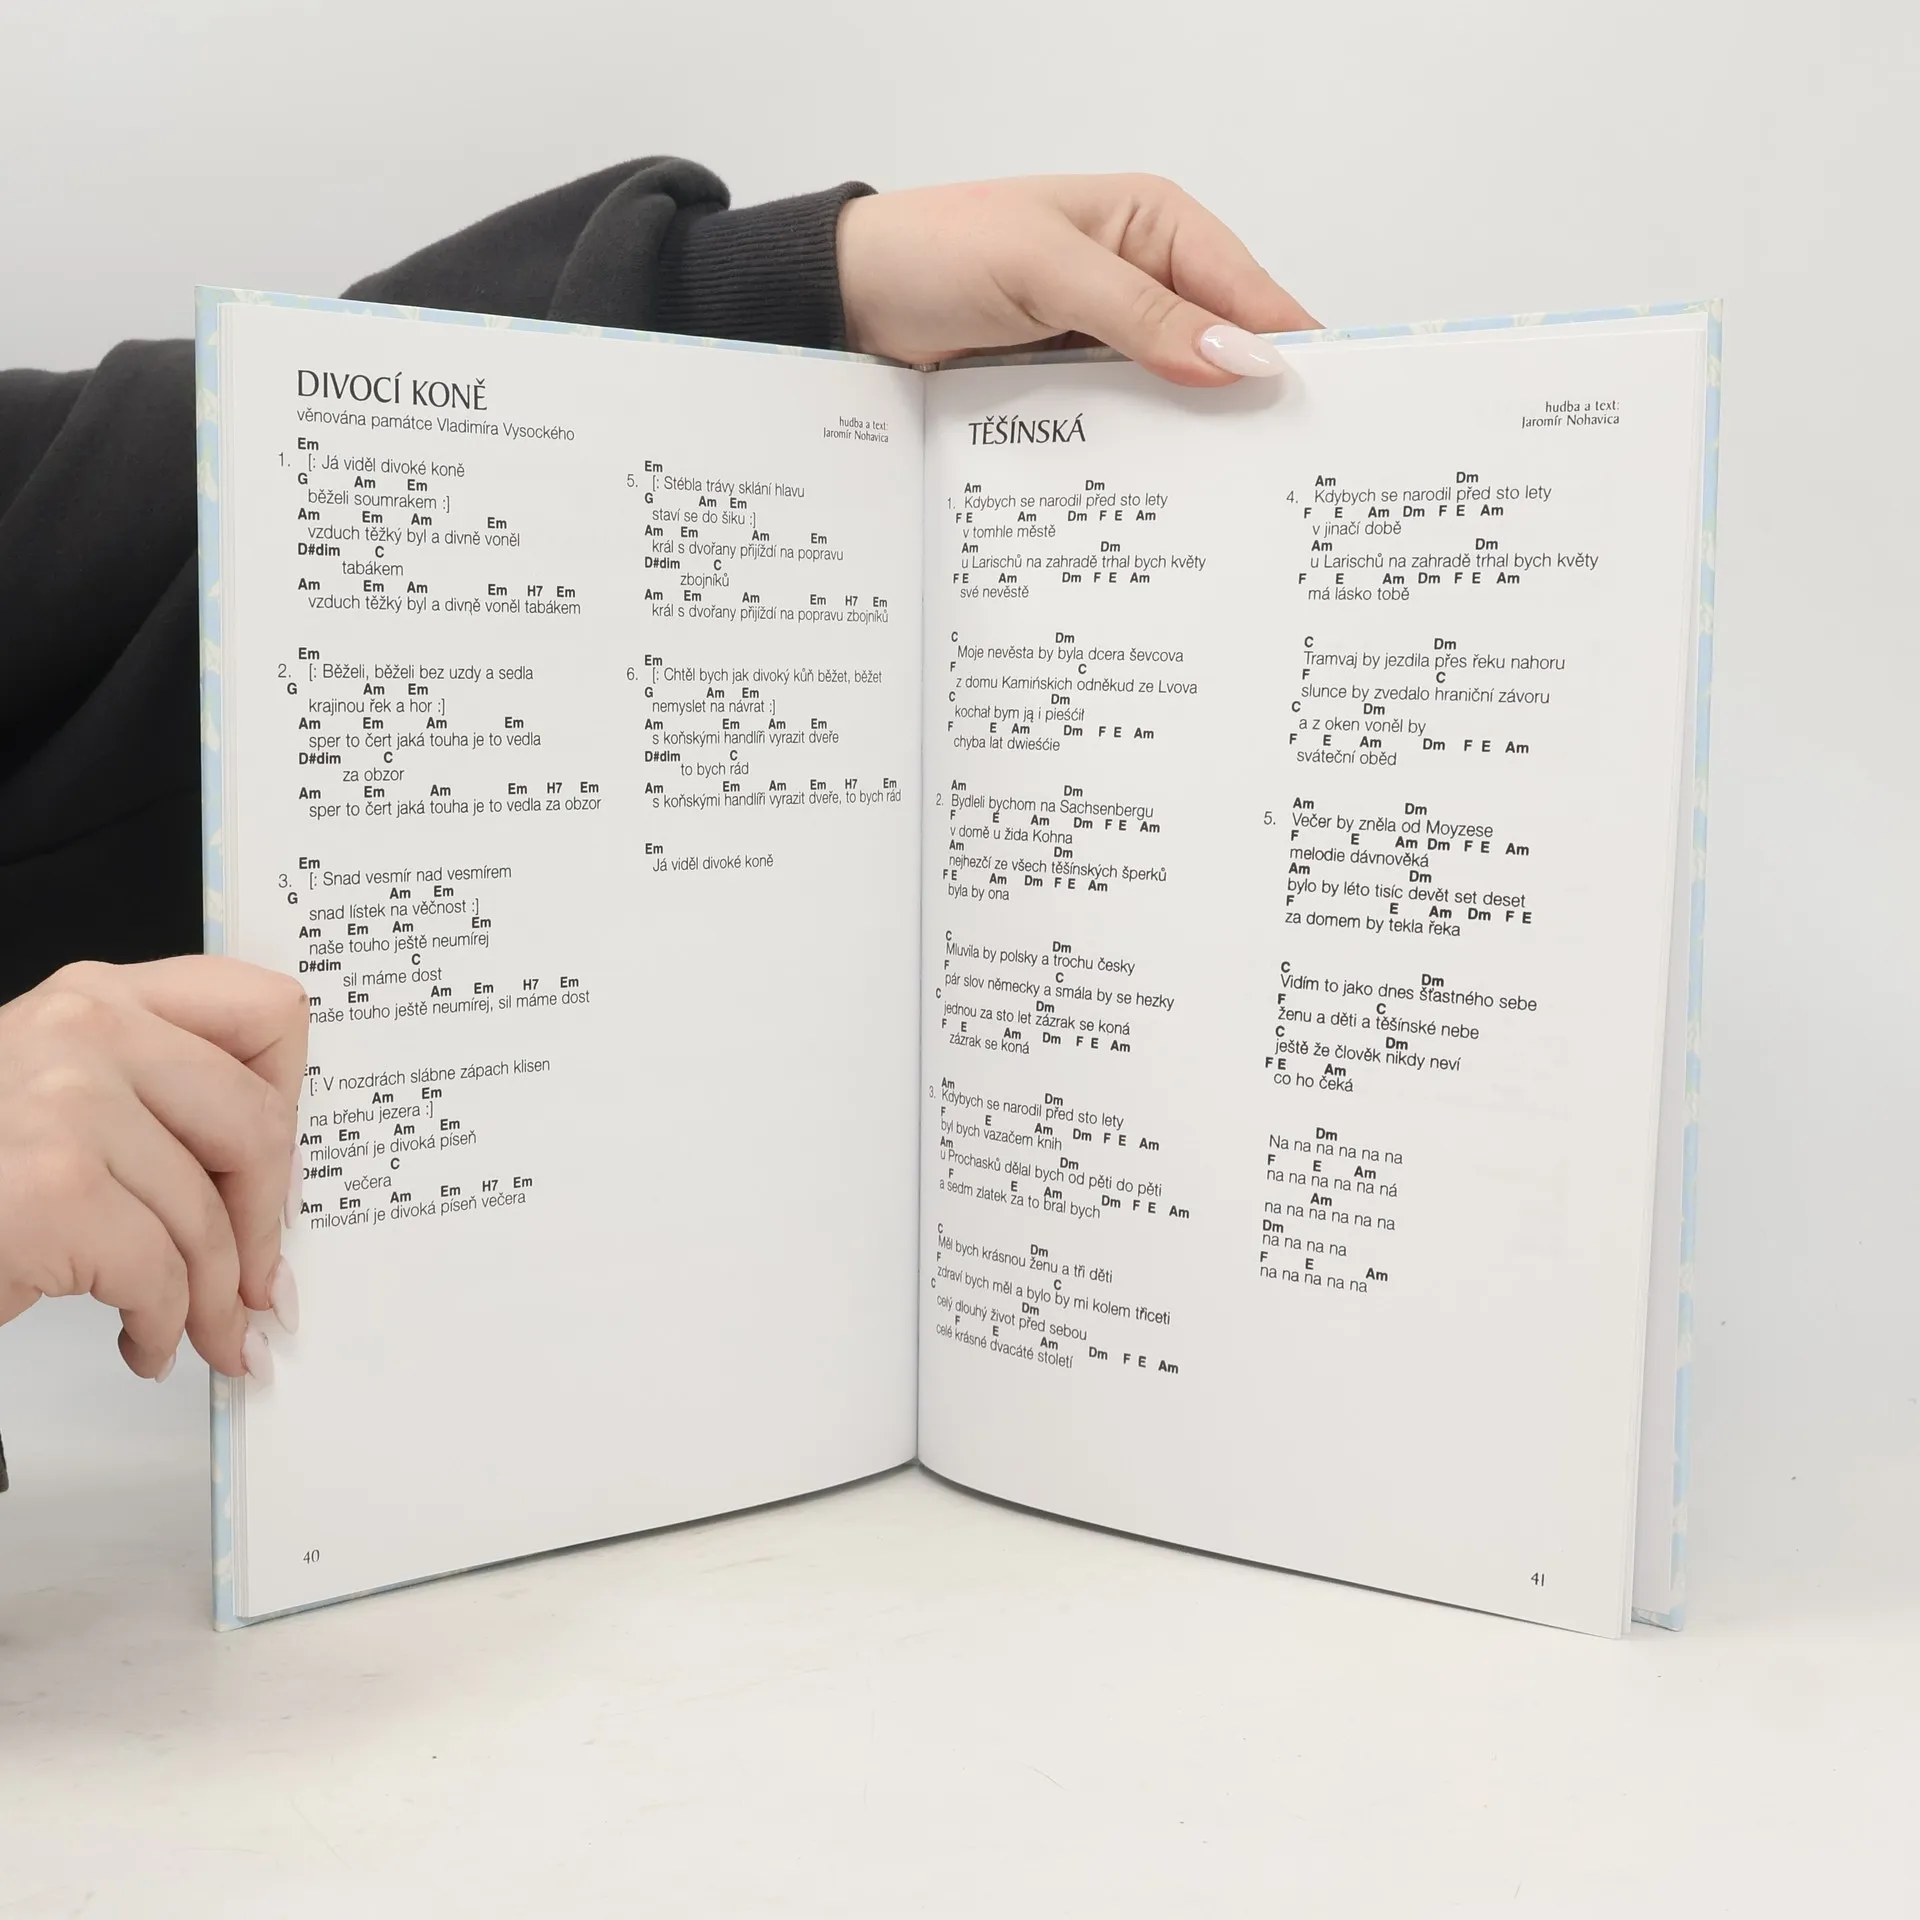 DIVOCÍ KONĚ
věnována památce Vladimíra Vysockého
hudba a text:
Jaromír Nohavica
Em
1. [: Já viděl divoké koně
G Am Em
běželi soumrakem :]
Am Em Am Em
vzduch těžký byl a divně voněl
D#dim C
tabákem
Am Em Am Em H7 Em
vzduch těžký byl a divně voněl tabákem
Em
2. [: Běželi, běželi bez uzdy a sedla
G Am Em
krajinou řek a hor :]
Am Em Am Em
sper to čert jaká touha je to vedla
D#dim C
za obzor
Am Em Am Em H7 Em
sper to čert jaká touha je to vedla za obzor
Em
3. [: Snad vesmír nad vesmírem
G Am Em
snad lístek na věčnost :]
Am Em Am Em
naše touho ještě neumírej
D#dim C
sil máme dost
m Em Am Em H7 Em
naše touho ještě neumírej, sil máme dost
Em
[: V nozdrách slábne zápach klisen
Am Em
na břehu jezera :]
Am Em Am Em
milování je divoká píseň
D#dim C
večera
Am Em Am Em H7 Em
milování je divoká píseň večera
Em
5. [: Stébla trávy sklání hlavu
G Am Em
staví se do šiku :]
Am Em Am Em
král s dvořany přijíždí na popravu
D#dim C
zbojníků
Am Em Am Em H7 Em
král s dvořany přijíždí na popravu zbojníků
Em
6. [: Chtěl bych jak divoký kůň běžet, běžet
G Am Em
nemyslet na návrat :]
Am Em Am Em
s koňskými handlíři vyrazit dveře
D#dim C
to bych rád
Am Em Am Em H7 Em
s koňskými handlíři vyrazit dveře, to bych rád
Em
Já viděl divoké koně
40
TĚŠÍNSKÁ
hudba a text:
Jaromír Nohavica
Am Dm
1. Kdybych se narodil před sto lety
F E Am Dm F E Am
v tomhle městě
Am Dm
u Larischů na zahradě trhal bych květy
F E Am Dm F E Am
své nevěstě
C Dm
Moje nevěsta by byla dcera ševcova
F C
z domu Kamińskich odněkud ze Lvova
C Dm
kochal bym ją i pieśćil
F E Am Dm F E Am
chyba lat dwieśćie
Am Dm
2. Bydleli bychom na Sachsenbergu
F E Am Dm F E Am
v domě u žida Kohna
Am Dm
nejhezčí ze všech těšínských šperků
F E Am Dm F E Am
byla by ona
C Dm
Mluvila by polsky a trochu česky
F C
pár slov německy a smála by se hezky
C Dm
jednou za sto let zázrak se koná
F E Am Dm F E Am
zázrak se koná
Am Dm
3. Kdybych se narodil před sto lety
F E Am Dm F E Am
byl bych vazačem knih
Am Dm
u Prochasků dělal bych od pěti do pěti
F E Am Dm F E Am
a sedm zlatek za to bral bych
C Dm
Měl bych krásnou ženu a tři děti
F C
zdraví bych měl a bylo by mi kolem třiceti
C Dm
celý dlouhý život před sebou
F E Am Dm F E Am
celé krásné dvacáté století
Am Dm
4. Kdybych se narodil před sto lety
F E Am Dm F E Am
v jinačí době
Am Dm
u Larischů na zahradě trhal bych květy
F E Am Dm F E Am
má lásko tobě
C Dm
Tramvaj by jezdila přes řeku nahoru
F C
slunce by zvedalo hraniční závoru
C Dm
a z oken voněl by
F E Am Dm F E Am
sváteční oběd
Am Dm
5. Večer by zněla od Moyzese
F E Am Dm F E Am
melodie dávnověká
Am Dm
bylo by léto tisíc devět set deset
F E Am Dm F E
za domem by tekla řeka
C Dm
Vidím to jako dnes šťastného sebe
F C
ženu a děti a těšínské nebe
C Dm
ještě že člověk nikdy neví
F E Am
co ho čeká
Dm
Na na na na na na
F E Am
na na na na na ná
Am
na na na na na na
Dm
na na na na
F E Am
na na na na na
41